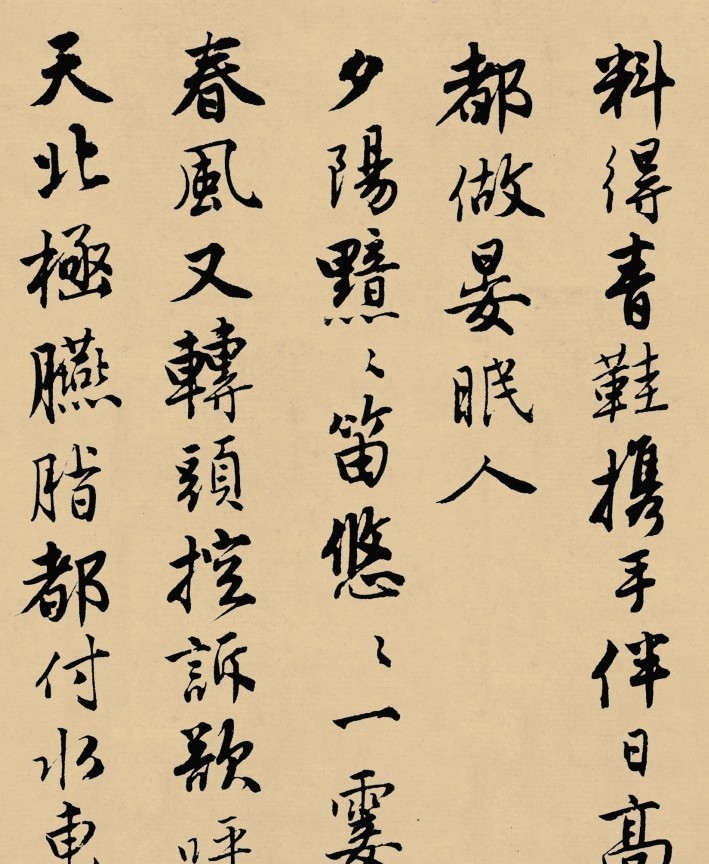 料得青鞋携手伴日高
都做晏眠人
夕陽黯〻笛悠〻一霎
春風又轉頭控訴欲呼
天北極臙脂都付水東